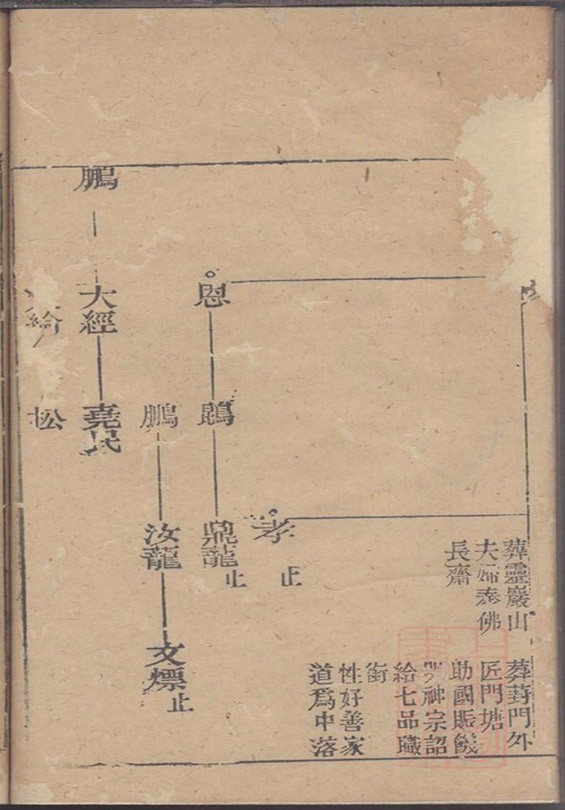 葬靈巖山
夫婦奉佛
長齋
葬葑門外
匠門塘
助國賑饑
神宗詔
給七品職
銜
性好善家
道爲中落
孝
止
恩
鵾
鼎龍
止
鵬
汝龍
文煙
止
鵬
大經
堯民
松